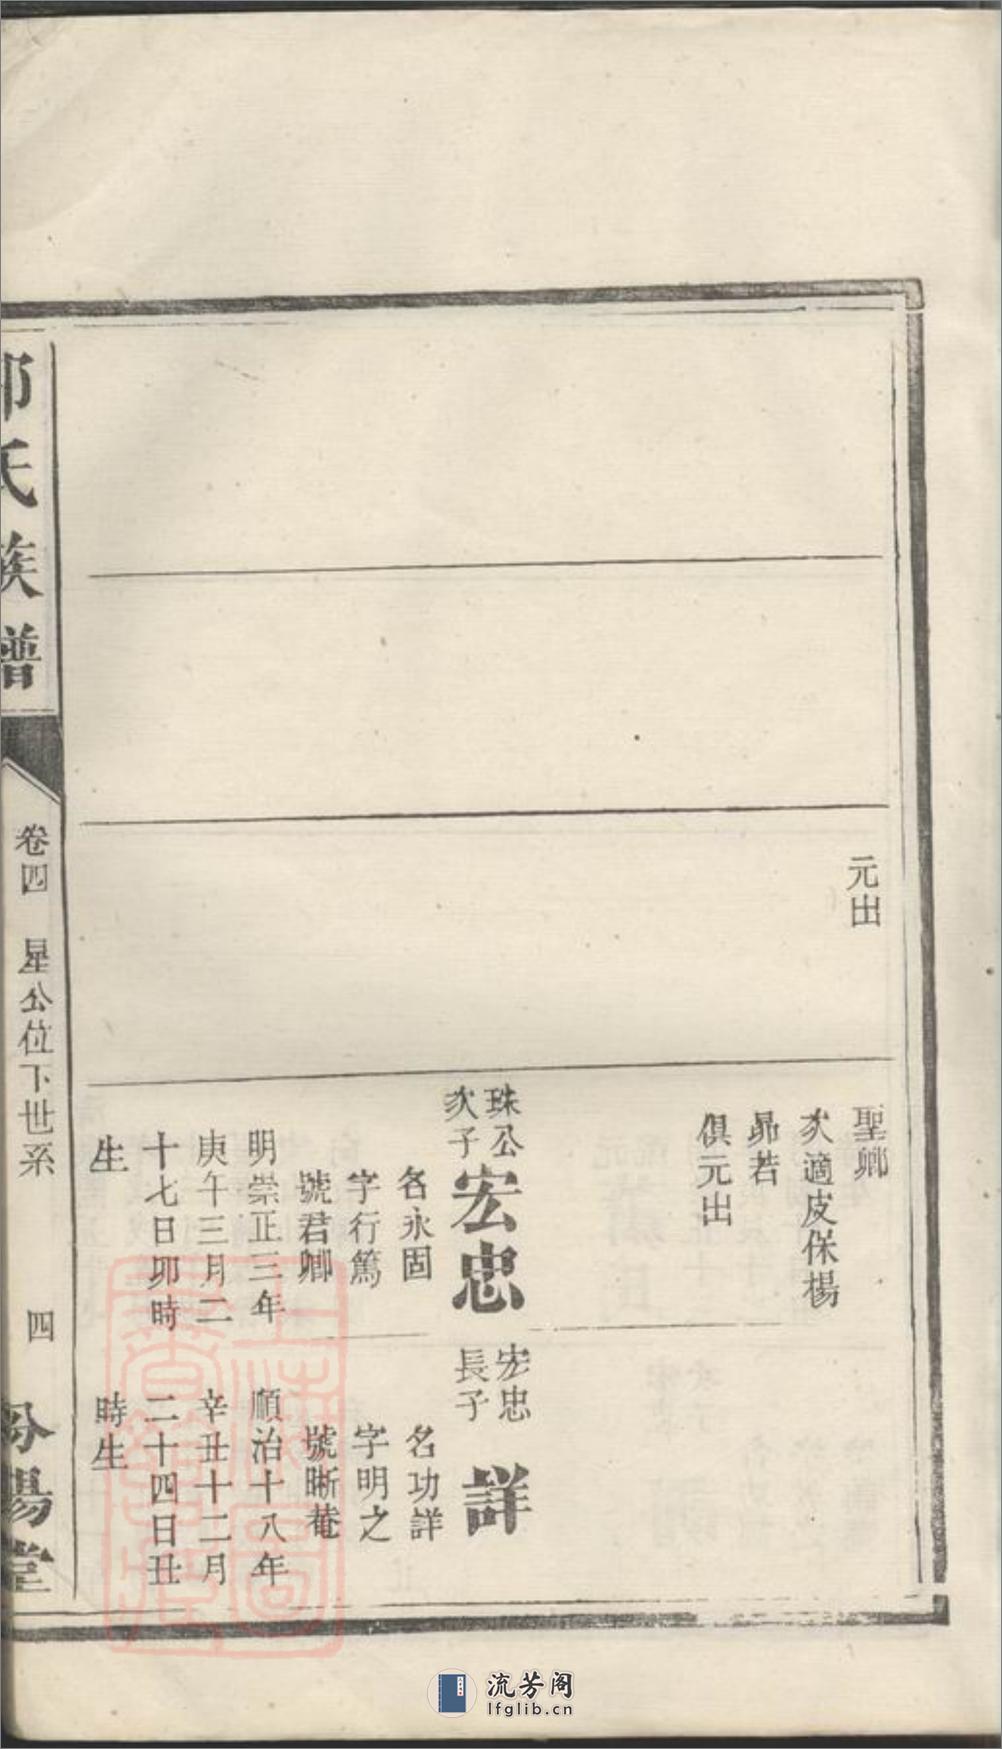 元出
聖卿
次適皮保楊
昴若
俱元出
珠公
次子
宏忠
名永固
字行篤
號君卿
明崇正三年
庚午三月二
十七日卯時
生
宏忠
長子
詳
名功詳
字明之
號晰菴
順治十八年
辛丑十二月
二十四日丑
時生
氏族譜
卷四 星公位下世系
四
汾陽堂
上海圖書館藏
流芳阁
lfglib.cn